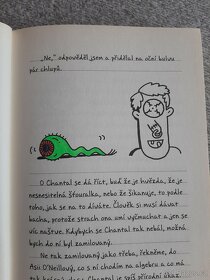 „Ne,“ odpověděl jsem a přidělal na oční bulvu
pár chlupů.
O Chantal se dá říct, buď že je hvězda, že je
nesnesitelná šťouralka, nebo že šikanuje, to podle
toho, jak se na to díváte. Člověk si musí dávat
bacha, protože strach ona umí vyčmuchat a jen se
víc naštve. Kdybych se Chantal tak nebál, možná
bych do ní byl zamilovaný.
Ne tak zamilovaný jako třeba, řekněme, do
Asii O'Neillový, co s ní chodím na algebru a co má
je svíš přírodní úkaz.